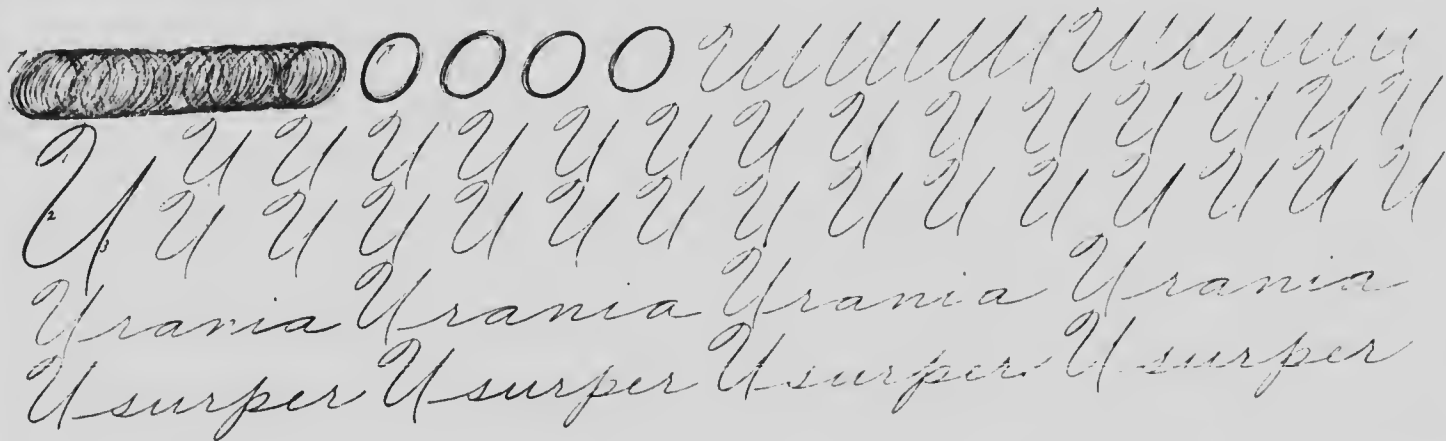 O O O O
U U U U U U U U U U U U U U U
1
2
3
U U U U U U U U U U U U U U
Urania Urania Urania Urania
Usurper Usurper Usurper Usurper